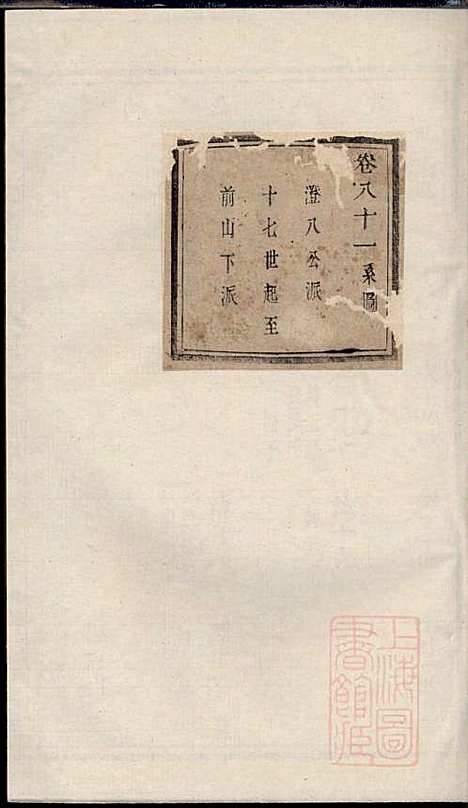 卷八十一系圖
澄八公派
十七世起至
前山下派
上海圖
書館藏